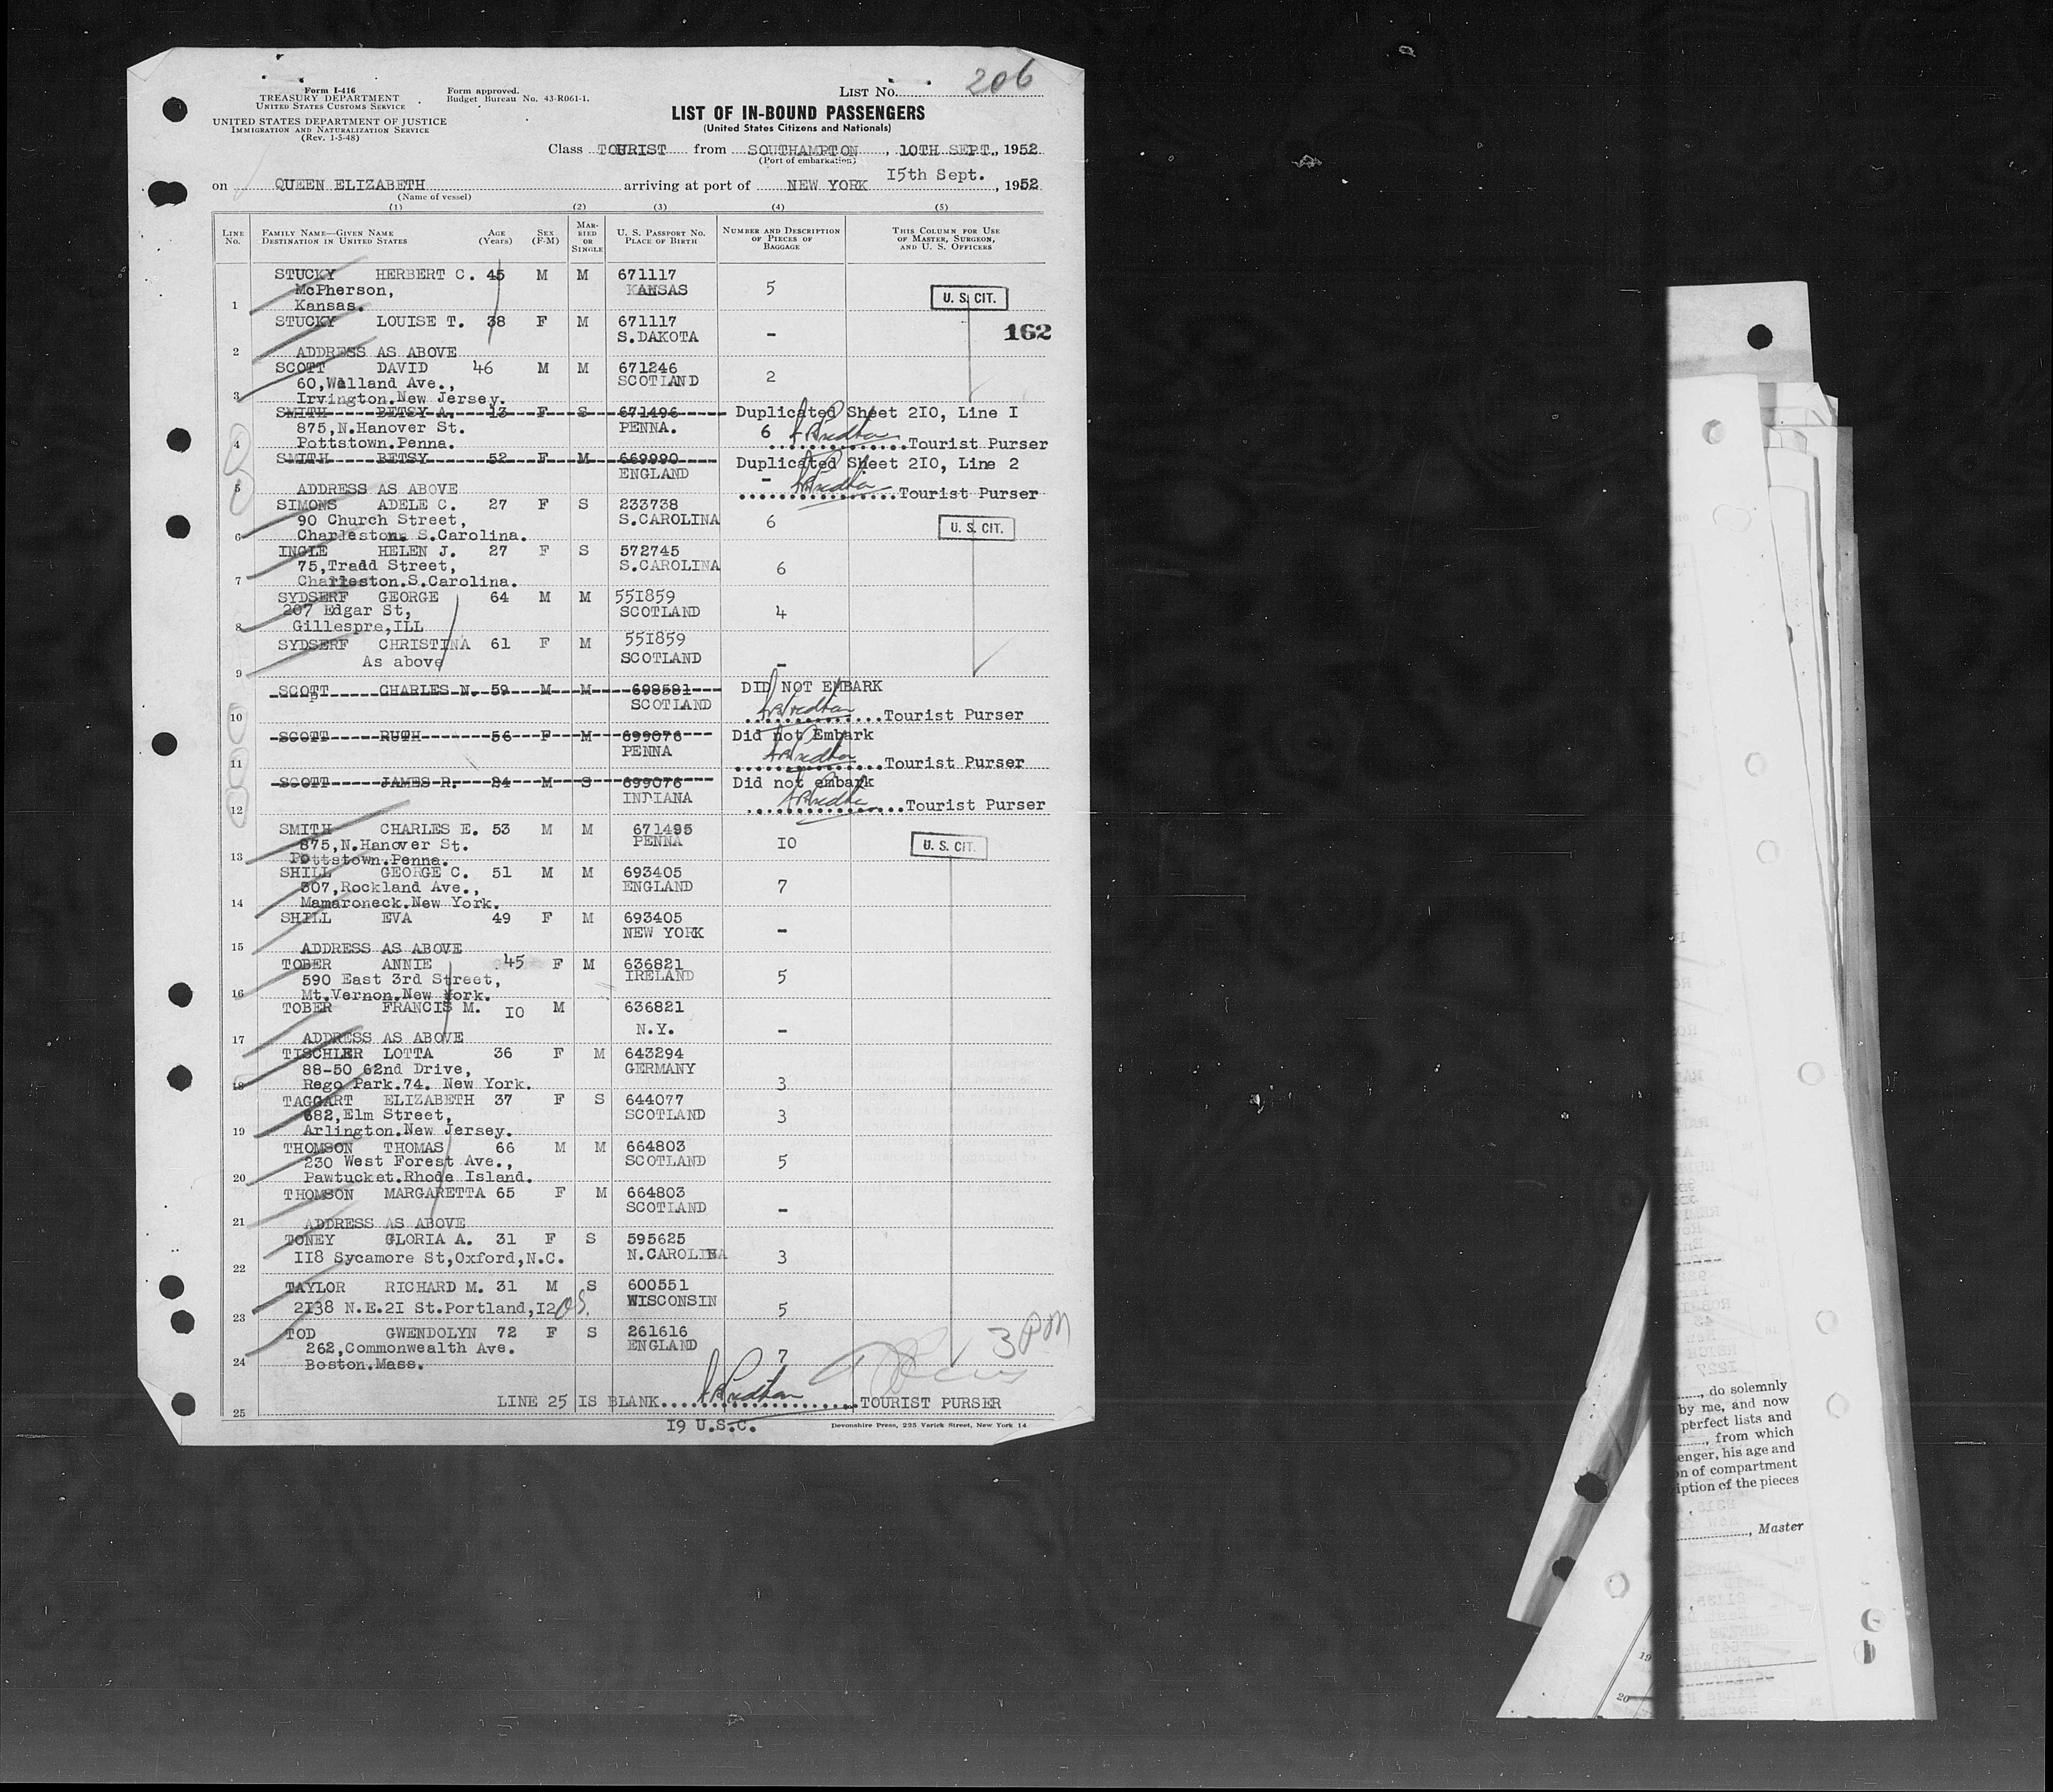 206
Form I-416
TREASURY DEPARTMENT
UNITED STATES CUSTOMS SERVICE
UNITED STATES DEPARTMENT OF JUSTICE
IMMIGRATION AND NATURALIZATION SERVICE
(Rev. 1-5-48)
Form approved.
Budget Bureau No. 43-R061-1.
LIST NO.
LIST OF IN-BOUND PASSENGERS
(United States Citizens and Nationals)
Class TOURIST from SOUTHAMPTON, 10TH SEPT., 1952
(Port of embarkation)
on QUEEN ELIZABETH arriving at port of NEW YORK 15th Sept., 1952
(Name of vessel)
(1) (2) (3) (4) (5)
LINE NO. FAMILY NAME—GIVEN NAME DESTINATION IN UNITED STATES AGE (Years) SEX (F-M) MARRIED OR SINGLE U. S. PASSPORT NO. PLACE OF BIRTH NUMBER AND DESCRIPTION OF PIECES OF BAGGAGE THIS COLUMN FOR USE OF MASTER, SURGEON, AND U. S. OFFICERS
STUCKY HERBERT C. 45 M M 671117
McPherson, KANSAS 5
1 Kansas. U. S. CIT.
STUCKY LOUISE T. 38 F M 671117
S.DAKOTA - 162
2 ADDRESS AS ABOVE
SCOTT DAVID 46 M M 671246
60,Walland Ave., SCOTLAND 2
3 Irvington.New Jersey.
SMITH BETSY A. 13 F S 671496 Duplicated Sheet 2IO, Line I
875,N.Hanover St. PENNA. 6
4 Pottstown.Penna. Tourist Purser
SMITH BETSY 52 F M 669990 Duplicated Sheet 2IO, Line 2
ENGLAND -
5 ADDRESS AS ABOVE Tourist Purser
SIMONS ADELE C. 27 F S 233738
90 Church Street, S.CAROLINA 6 U. S. CIT.
6 Charleston. S.Carolina.
INGLE HELEN J. 27 F S 572745
75,Tradd Street, S.CAROLINA 6
7 Charleston.S.Carolina.
SYDSERF GEORGE 64 M M 55I859
207 Edgar St, SCOTLAND 4
8 Gillespre,ILL
SYDSERF CHRISTINA 61 F M 55I859
As above SCOTLAND -
9
SCOTT CHARLES N. 59 M M 698581 DID NOT EMBARK
SCOTLAND
10 Tourist Purser
SCOTT RUTH 56 F M 699076 Did not Embark
PENNA
11 Tourist Purser
SCOTT JAMES R. 24 M S 699076 Did not embark
INDIANA
12 Tourist Purser
SMITH CHARLES E. 53 M M 671495
875,N.Hanover St. PENNA IO U. S. CIT.
13 Pottstown.Penna.
SHILL GEORGE C. 51 M M 693405
307,Rockland Ave., ENGLAND 7
14 Mamaroneck.New York.
SHILL EVA 49 F M 693405
NEW YORK -
15 ADDRESS AS ABOVE
TOBER ANNIE 45 F M 636821
590 East 3rd Street, IRELAND 5
16 Mt.Vernon.New York.
TOBER FRANCIS M. IO M 636821
N.Y. -
17 ADDRESS AS ABOVE
TISCHLER LOTTA 36 F M 643294
88-50 62nd Drive, GERMANY
18 Rego Park.74. New York. 3
TAGGART ELIZABETH 37 F S 644077
682,Elm Street, SCOTLAND 3
19 Arlington.New Jersey.
THOMSON THOMAS 66 M M 664803
230 West Forest Ave., SCOTLAND 5
20 Pawtucket.Rhode Island.
THOMSON MARGARETTA 65 F M 664803
SCOTLAND -
21 ADDRESS AS ABOVE
TONEY GLORIA A. 31 F S 595625
II8 Sycamore St,Oxford,N.C. N.CAROLINA 3
22
TAYLOR RICHARD M. 31 M S 600551
2I38 N.E.2I St.Portland,I2 WISCONSIN 5
23
TOD GWENDOLYN 72 F S 261616 3 PM
262,Commonwealth Ave. ENGLAND 7
24 Boston.Mass.
LINE 25 IS BLANK TOURIST PURSER
25
I9 U.S.C.
Devonshire Press, 225 Varick Street, New York 14
, do solemnly
by me, and now
perfect lists and
, from which
enger, his age and
on of compartment
iption of the pieces
, Master
19
20